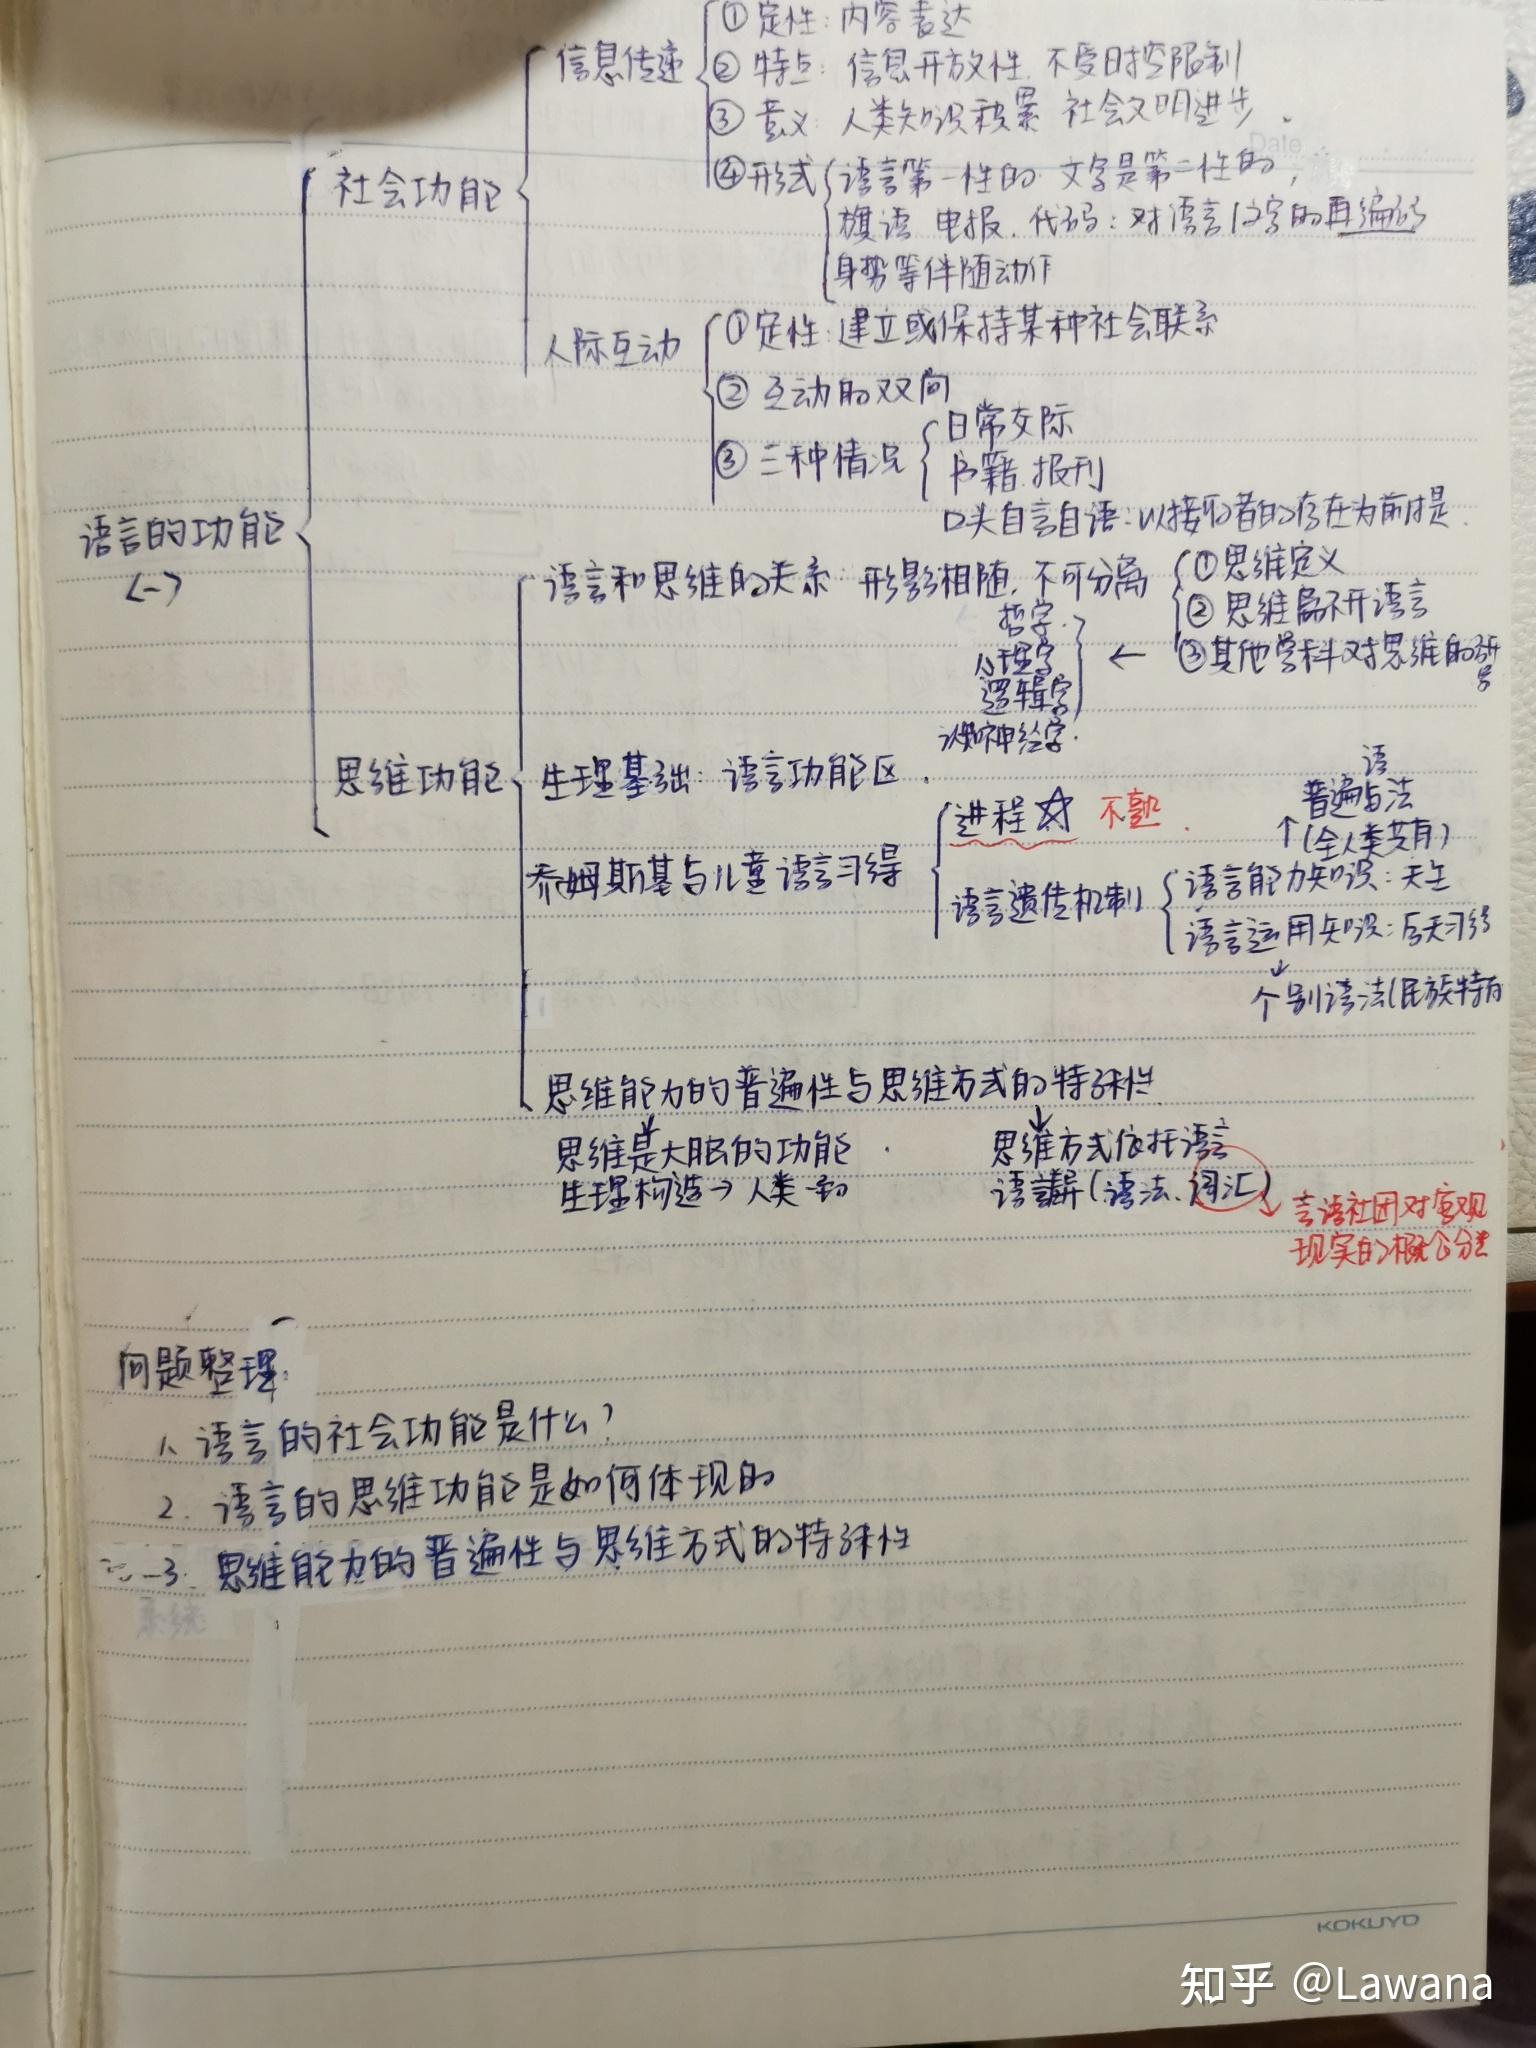 ① 定性：内容表达
信息传递 ② 特点：信息开放性 不受时空限制
③ 意义：人类知识积累 社会文明进步.
Date
社会功能 ④形式 语言第一性的 文字是第二性的,
旗语 电报. 代码：对语言/文字的再编码
身势等伴随动作
人际互动 ①定性：建立或保持某种社会联系
② 互动的双向
③ 三种情况 日常交际
书籍.报刊
口头自言自语：以接收者的存在为前提.
语言的功能
(一)
语言和思维的关系：形影相随, 不可分离 ①思维定义
② 思维离不开语言
③其他学科对思维的研
究
哲学.
心理学
逻辑学
认知神经学.
思维功能 生理基础：语言功能区.
乔姆斯基与儿童语言习得 进程☆ 不熟.
语言遗传机制 语言能力知识：天生
语
普遍与法
↑(全人类共有)
语言运用知识：后天习得
↓
个别语法(民族特有
思维能力的普遍性与思维方式的特殊性
思维是大脑的功能. 思维方式依托语言
生理构造→人类一致 语言差异(语法、词汇)
言语社团对客观
现实的概念分类
问题整理：
1、语言的社会功能是什么?
2. 语言的思维功能是如何体现的
3. 思维能力的普遍性与思维方式的特殊性
系统
KOKUYO
知乎 @Lawana